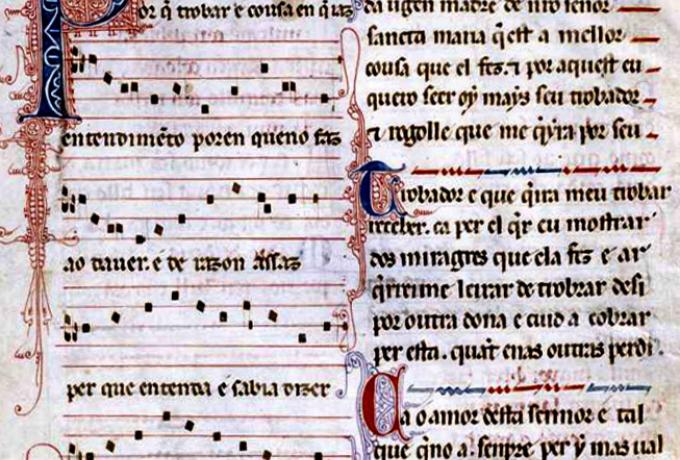 Por q̄ trobar e cousa en q̄ iaz
entendimēto poren queno faz
ao dauer. e de razon assaz
per que entenda e sabia dizer
da uirgen madre de nr̄o sennor
sancta maria q̄ est a mellor
cousa que el fez. ⁊ por aquest eu
quero seer oy mays seu trobador
⁊ rogolle que me q̄ira por seu
Trobador e que q̄ira meu trobar
receber. ca per el q̄r eu mostrar
dos miragres que ela fez e ar
q̄rreime leixar de trobrar desi
por outra dona e cuid a cobrar
per esta. quāt enas outras perdi.
Ca o amor desta sennor e tal
que q̄no a. senpre per y mas ual